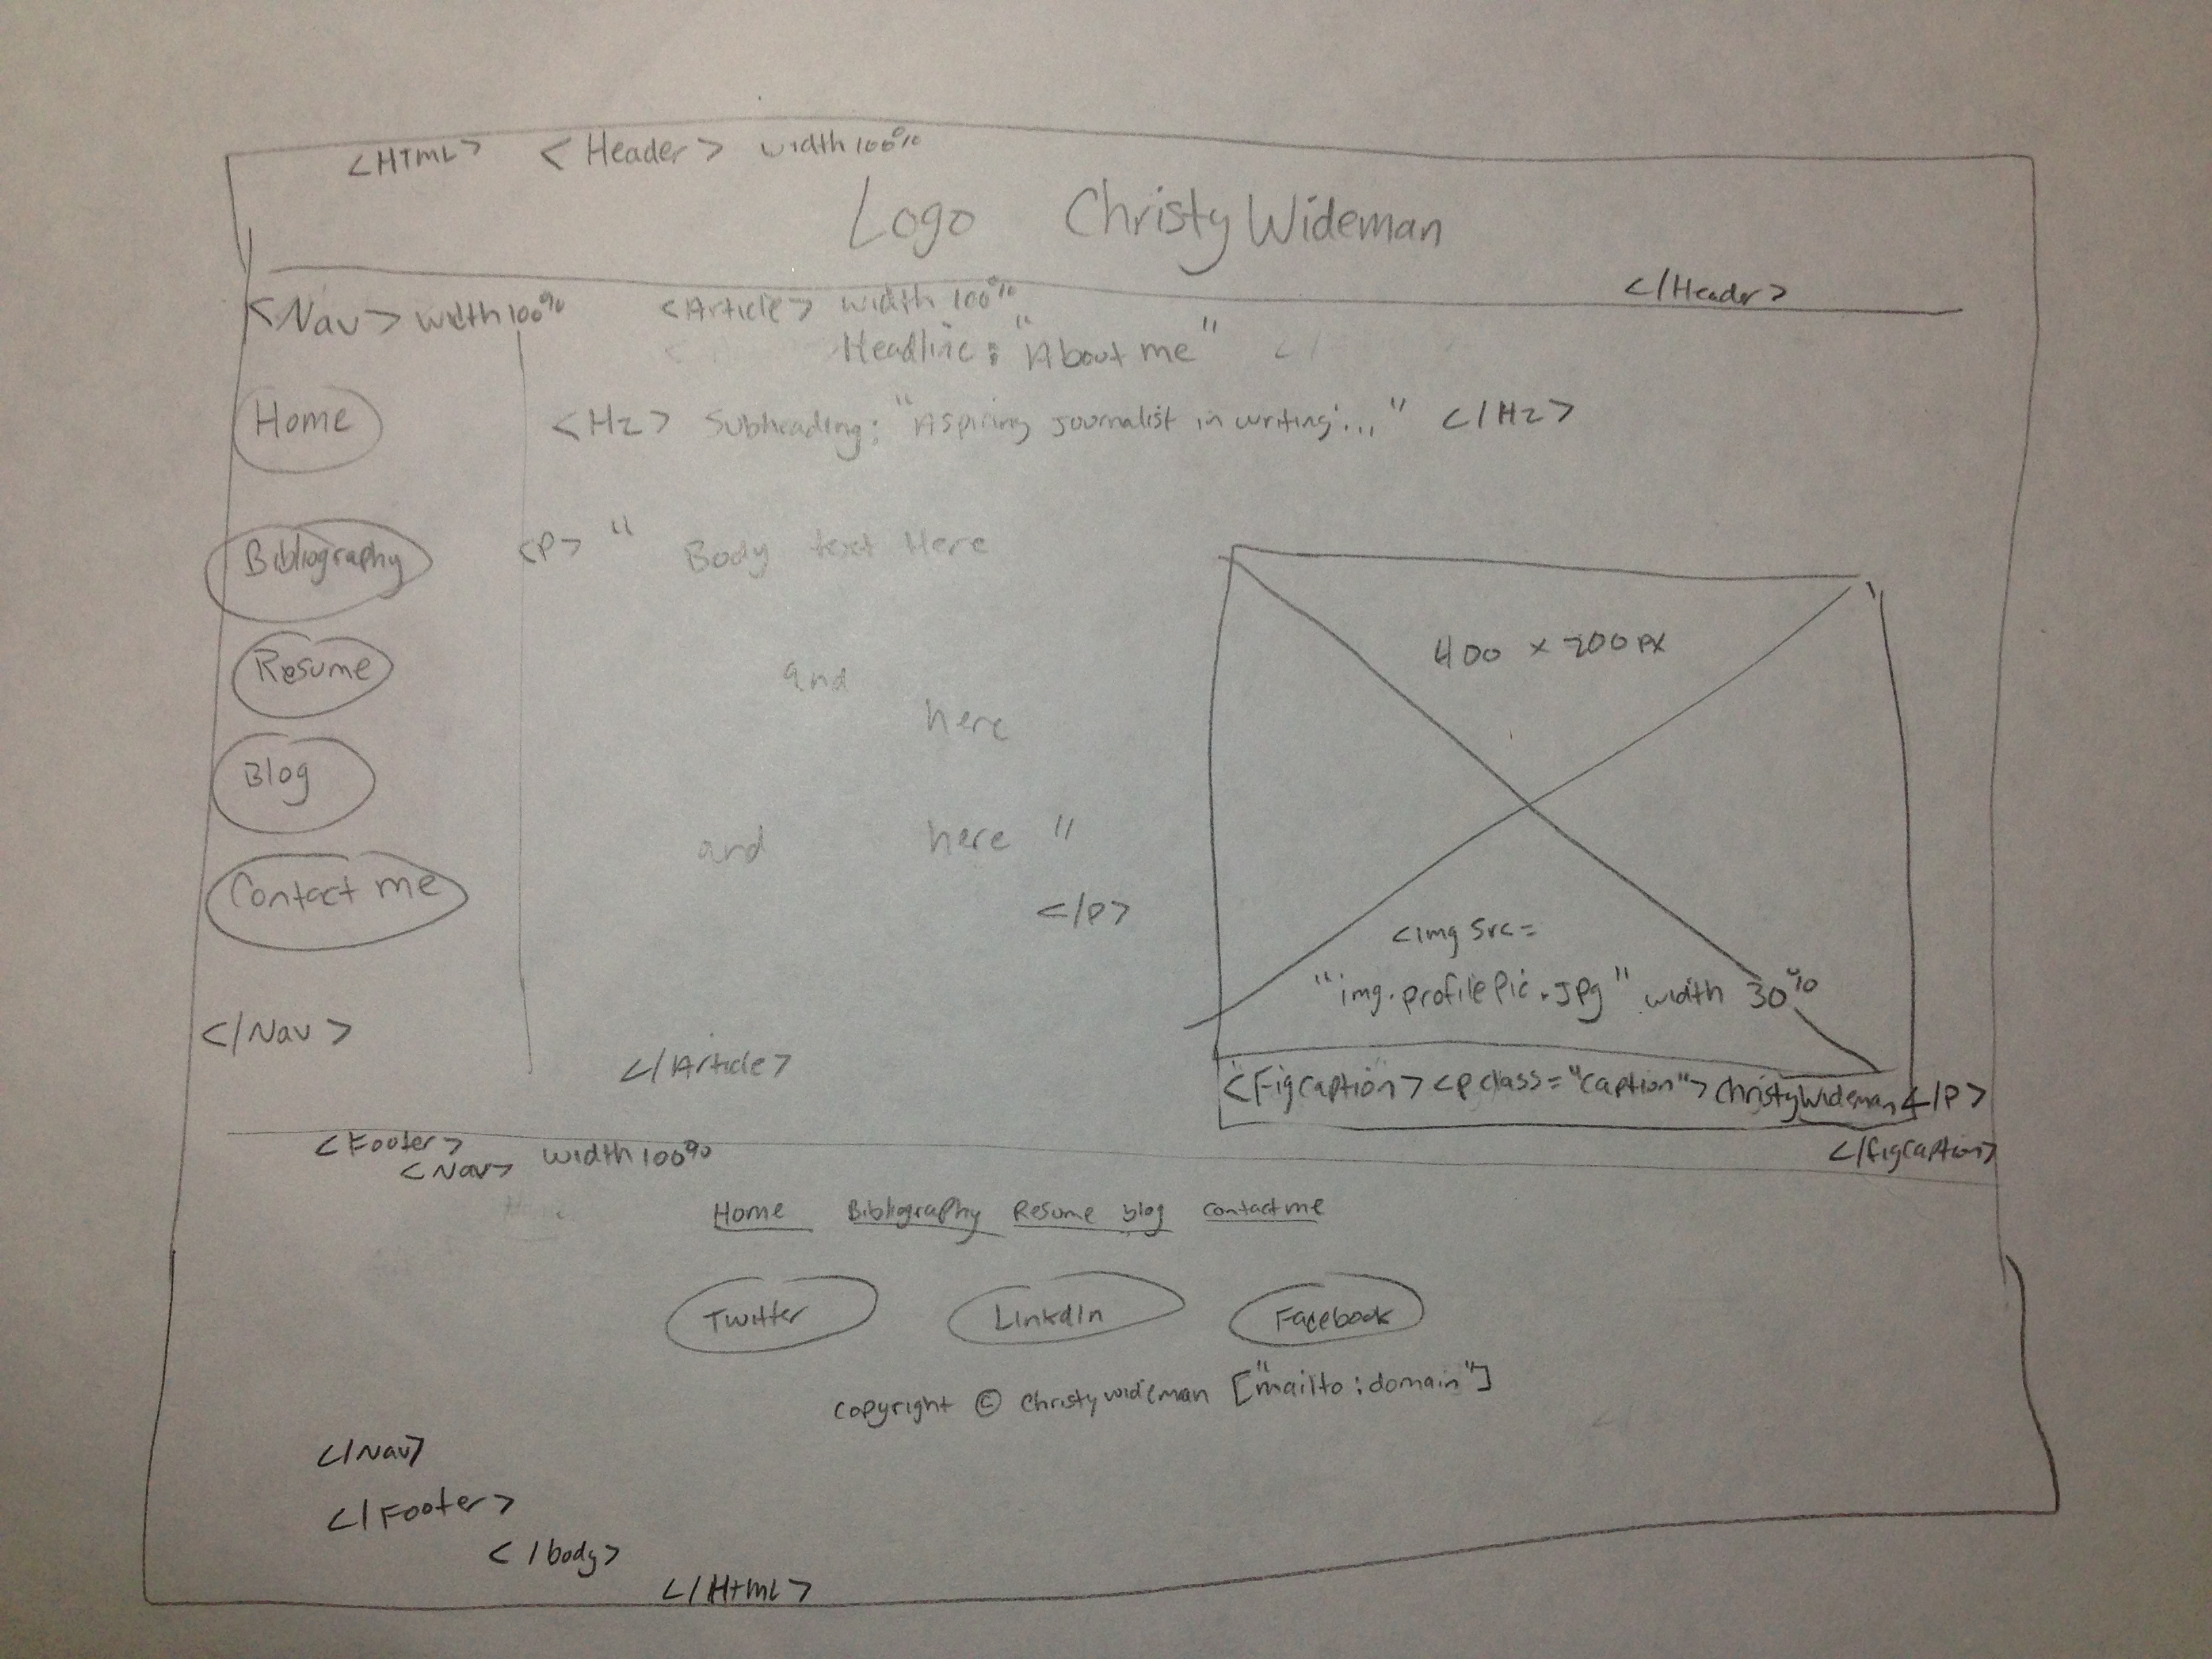 <HTML> <Header> width 100%
Logo Christy Wideman
</Header>
<Nav> width 100% <Article> width 100%
Headline: "About me"
Home
<H2> Subheading: "Aspiring journalist in writing..." </H2>
Bibliography
<P> " Body text Here
Resume
and
here
400 x 200 px
Blog
and here "
Contact me
</P>
<img src=
"img.profilePic.Jpg" width 30%
</Nav>
</Article>
<Figcaption> <p class="caption"> Christy Wideman </P>
</figcaption>
<Footer>
<Nav> width 100%
Home Bibliography Resume blog contact me
Twitter LinkdIn Facebook
copyright © Christy wideman ["mailto:domain"]
</Nav>
</Footer>
</body>
</HtmL>